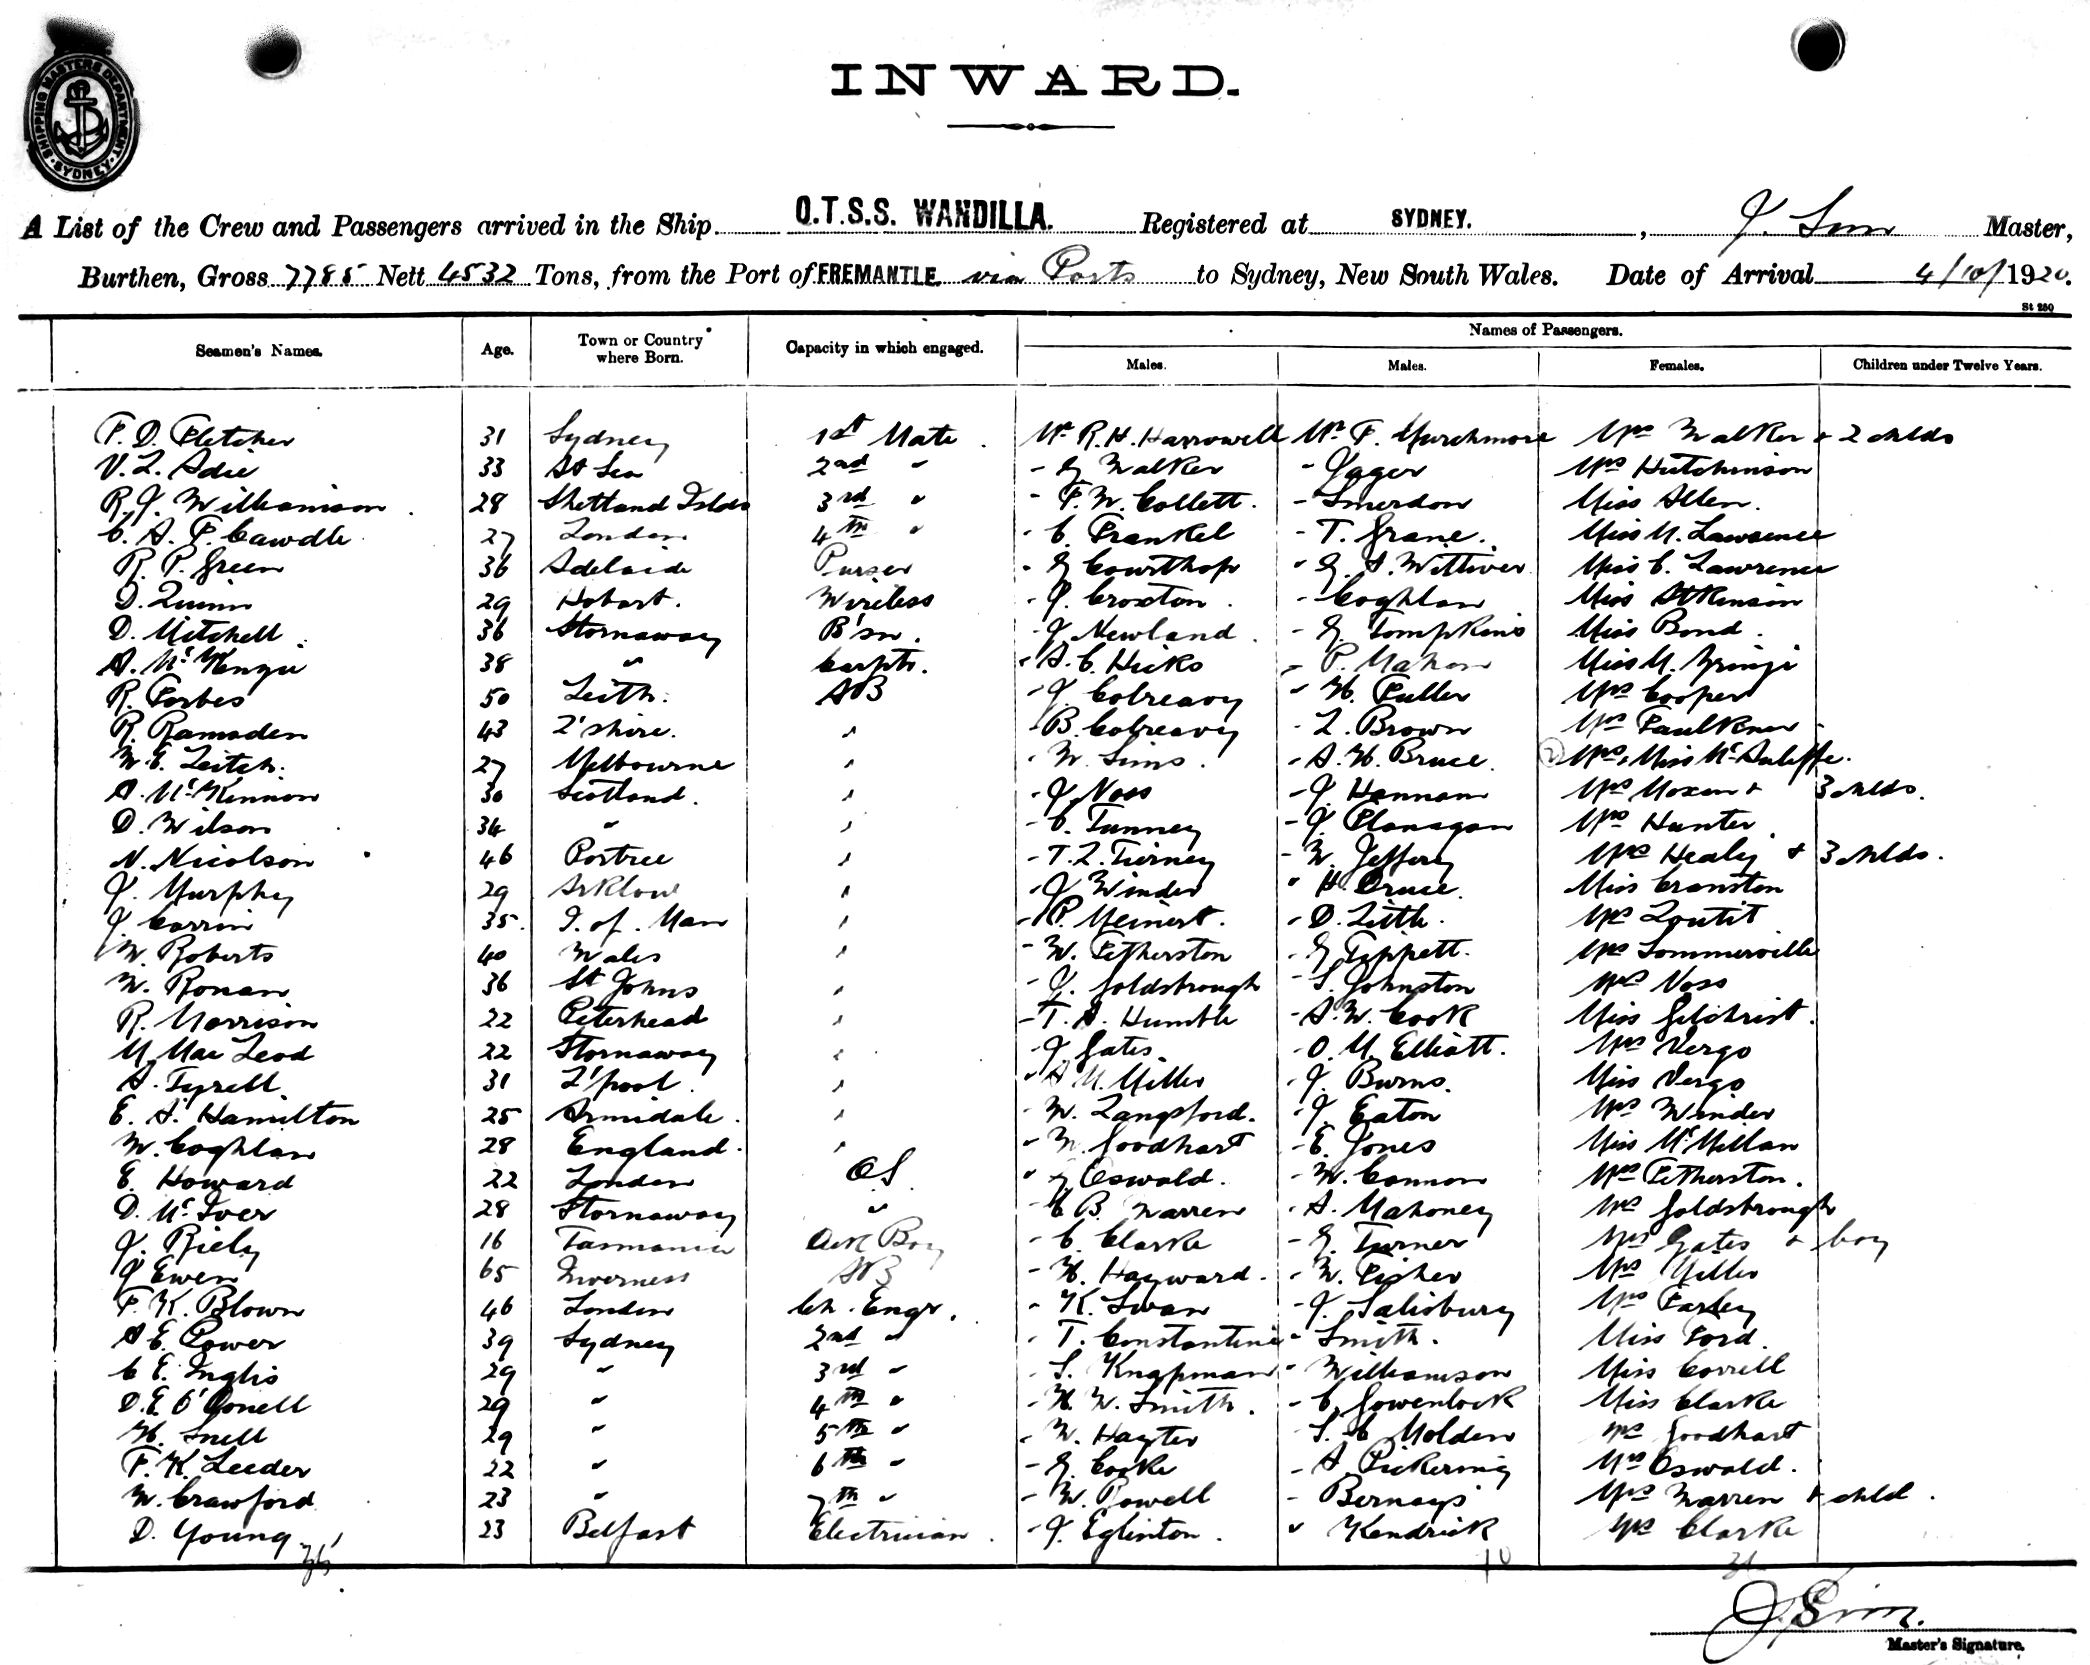 SHIPPING MASTERS DEPARTMENT · SYDNEY ·
INWARD.
A List of the Crew and Passengers arrived in the Ship Q.T.S.S. WANDILLA. Registered at SYDNEY, J. Sim Master,
Burthen, Gross 7785 Nett 4532 Tons, from the Port of FREMANTLE via Ports to Sydney, New South Wales. Date of Arrival 4/10/1920.
St 250
Seamen's Names. Age. Town or Country where Born. Capacity in which engaged. Names of Passengers.
Males. Males. Females. Children under Twelve Years.
F. D. Fletcher 31 Sydney 1st Mate Mr R. H. Harrowell Mr F. Murchmore Mrs Walker + 2 childs
V. L. Adie 33 At Sea 2nd " - G Walker - Jager Mrs Hutchinson
R. J. Williamson 28 Shetland Islds 3rd " - F. W. Collett. - Smerdon Miss Allen.
C. A. F. Cawdle 27 London 4th " - C. Frankel - T. Grane. Miss M. Lawrence
R. P. Green 36 Adelaide Purser - G Courthop - G. A. Wittiver Miss C. Lawrence
D. Quinn 29 Hobart. Wireless - J. Croxton. - Coghlan Miss Atkinson
D. Mitchell 36 Stornaway B'sn. - J Newland. - G. Tompkins Miss Bond.
A. McKengie 38 " Carptr. - A. C. Hicks - P. Mahon Miss M.
R. Forbes 50 Leith. AB - J Colreavy " H. Fuller Mrs Cooper
R. Ramsden 43 L'shire. " - B. Colreavy - L. Brown Mrs Faulkner
W. E. Leitch. 27 Melbourne " - W. Sims. - A. H. Bruce. (2) Mrs, Miss McAuliffe.
A. McKinnon 30 Scotland. " - J. Voss - J. Hannam Mrs Moxen + 3 childs.
D. Wilson 34 " " - C. Tunney - J Flanagan Mrs Hunter
N. Nicolson 46 Portree " - T. L. Tierney - W. Jeffery Mrs Healy + 3 childs.
J. Murphy 29 Arklow " - J Winder " H. Bruce. Miss Cranston
J Corrin 35. I. of. Man " - P. Meinert. - D. Little. Mrs Loutit
W. Roberts 40 Wales " - W. Fetherston - G Tippett. Mrs Sommerville
W. Ronan 36 St Johns " - J. Goldsbrough - S. Johnston Mrs Voss
R. Morrison 22 Peterhead " - T. A. Humble - A. W. Cook Miss Gilchrist.
M. MacLeod 22 Stornaway " - J. Gates. - O. M. Elliott. Mrs Vergo
A. Tyrell. 31 L'pool. " - A M. Miller - J. Burns. Miss Vergo
E. A. Hamilton 25 Armidale. " - W. Langsford. - J. Eaton Mrs Winder
W. Coghlan 28 England. " - W Goodhart - E. Jones Miss McMillan
E. Howard 22 London OS - G Oswald. - W. Connon Mrs Fetherston.
D. McIver 28 Stornaway " - E B. Warren - A. Mahoney Mrs Goldsbrough
J. Riely 16 Tasmania Deck Boy - C. Clarke - G. Turner Mrs Gates + boy
J Ewen 65 Inverness AB - H. Hayward. - W. Fisher Mrs Miller
F. K. Blown 46 London Ch. Engr. - K. Swan - J. Salisbury Mrs Farley
A E. Power 39 Sydney 2nd " - T. Constantine - Smith. Miss Ford.
C E. Inglis 29 " 3rd " - S. Knapman - Williamson Miss Correll
D. E. O'Conell 29 " 4th " - H. W. Smith. - C. Gowenlock Miss Clarke
H. Snell 29 " 5th " - W. Hayter - S. C Molden Mrs Goodhart
F. K. Leeder 22 " 6th " - G. Cooke - A Pickering Mrs Oswald.
W. Crawford 23 " 7th " - W. Rowell - Bernays Mrs Warren + child.
D. Young 23 Belfast Electrician. - J. Eglinton. " Kendrick Mrs Clarke
J. Sim.
Master's Signature.